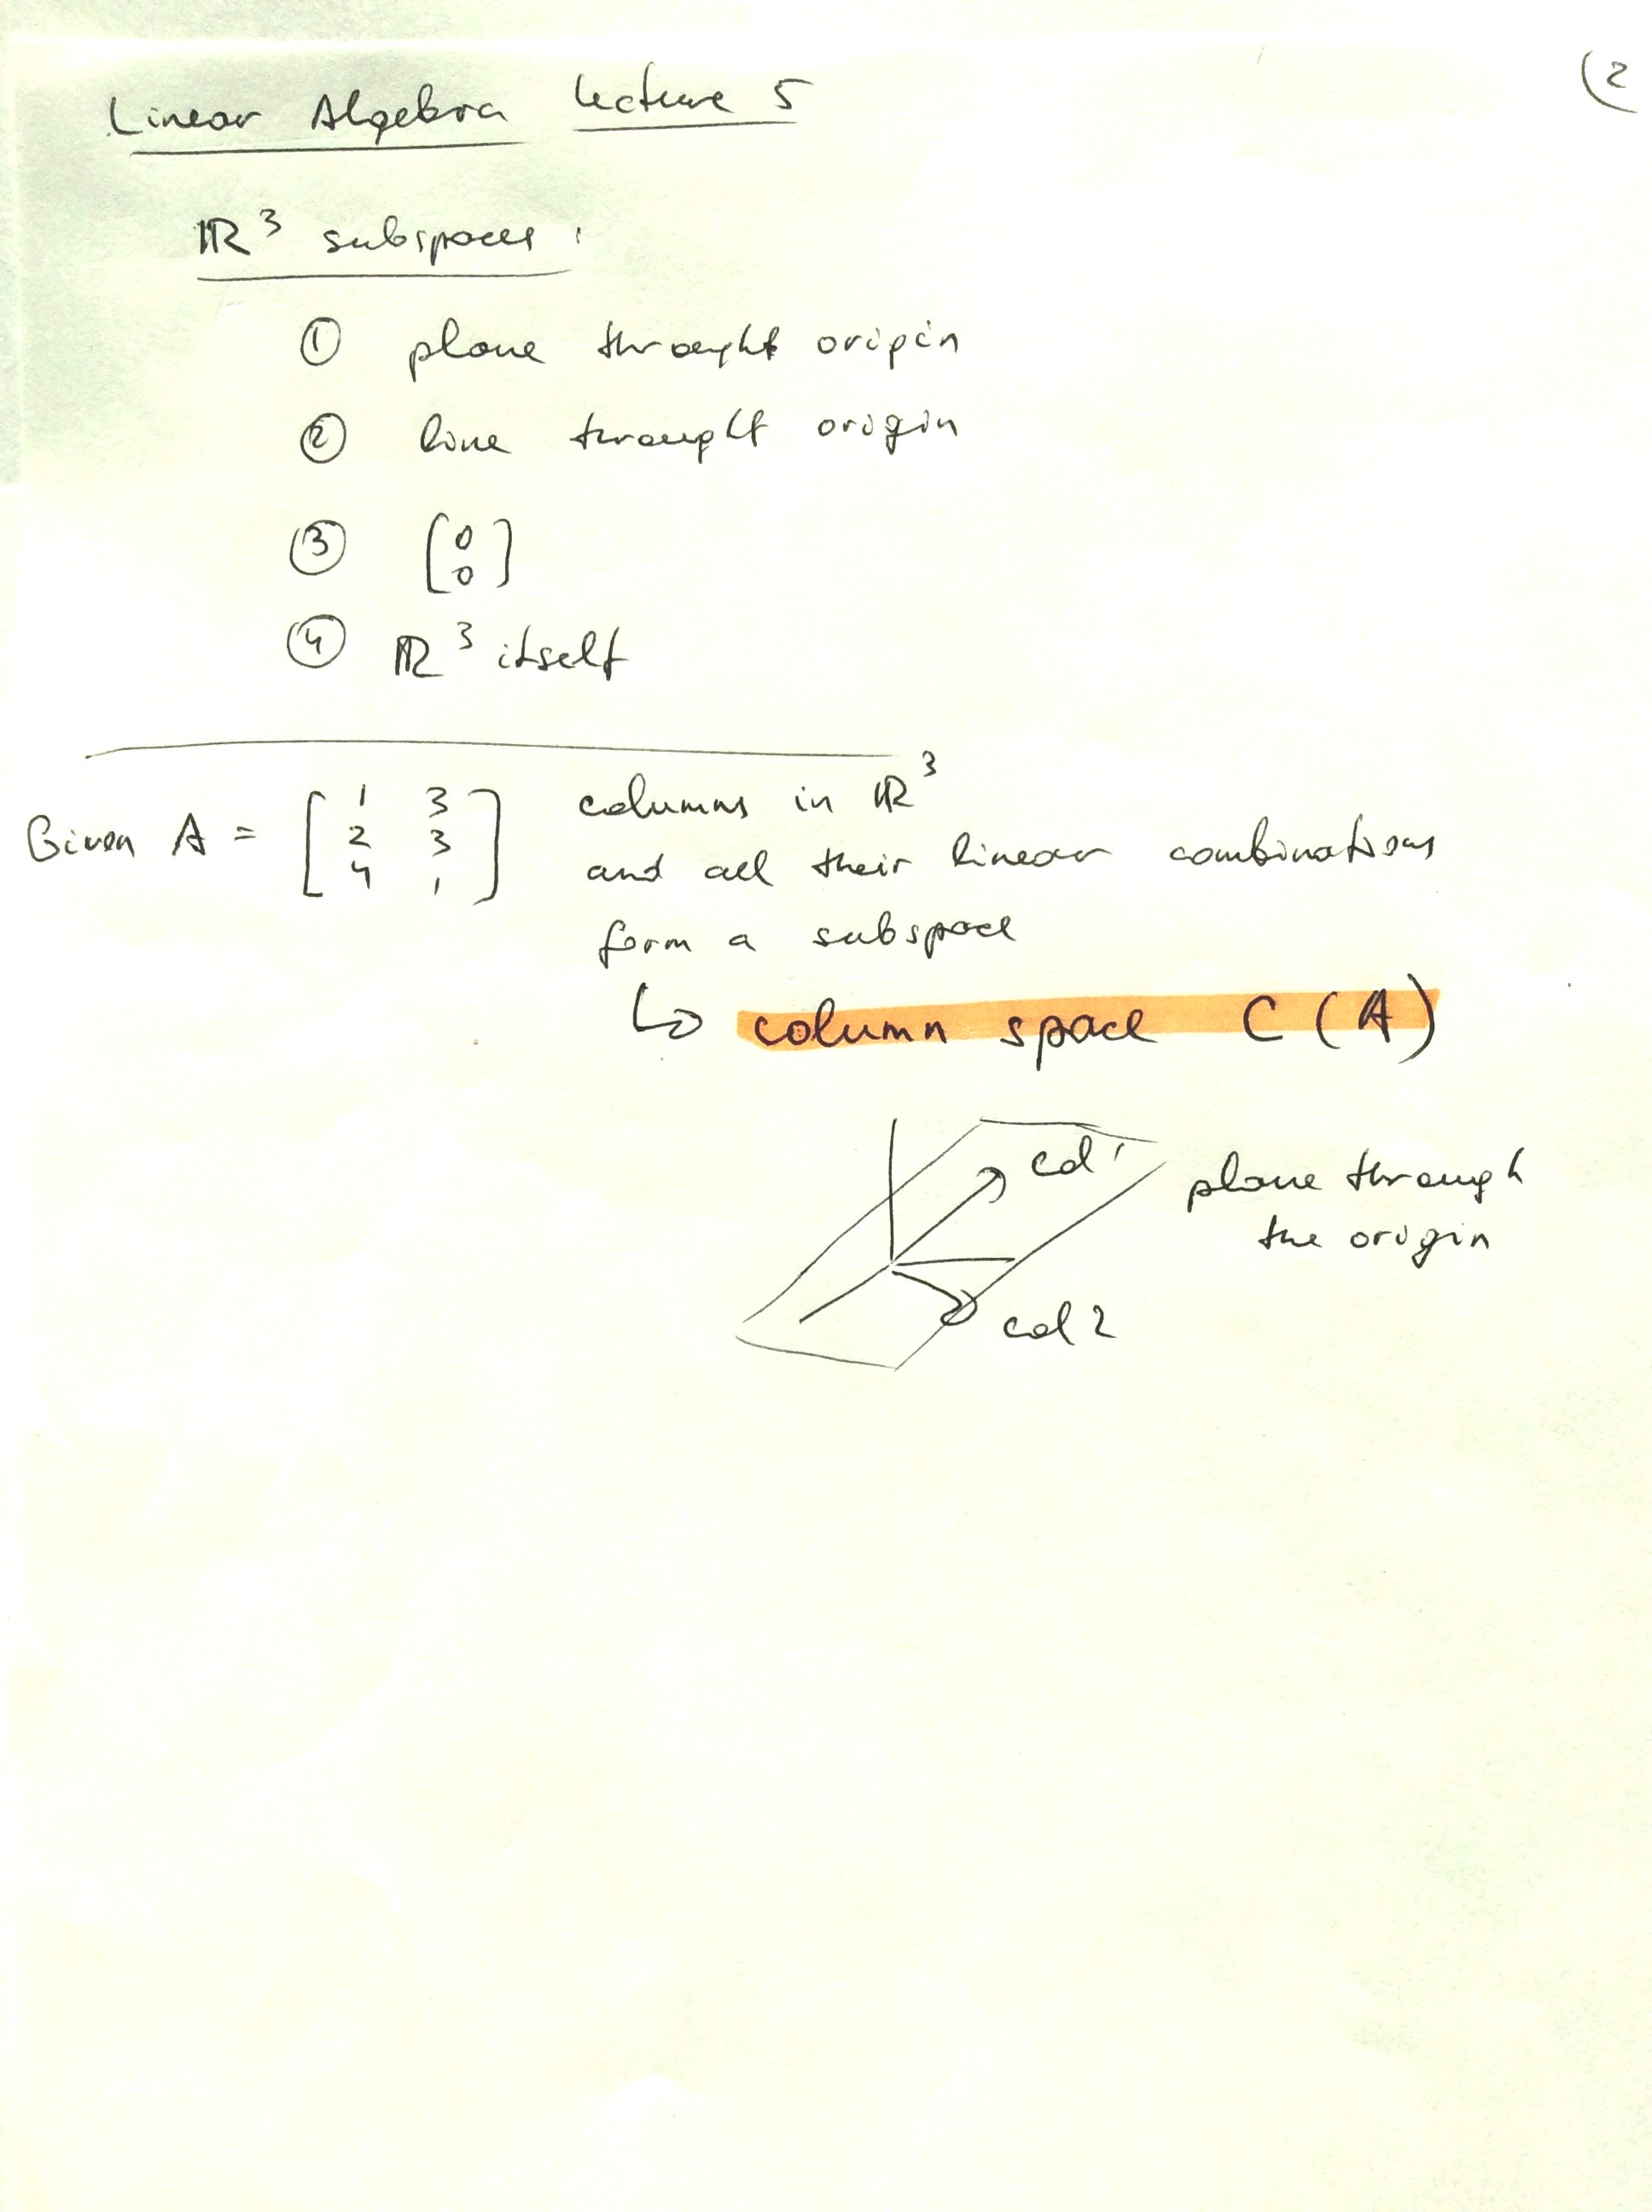 Linear Algebra Lecture 5
(2
ℝ³ subspaces:
① plane throught origin
② line throught origin
③ [0
0]
④ ℝ³ itself
Given A = [1 3
2 3
4 1]
columns in ℝ³
and all their linear combinations
form a subspace
↳ column space C(A)
col 1
plane through
the origin
col 2